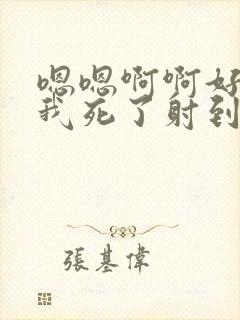 嗯嗯啊啊好
我死了射到
張基偉